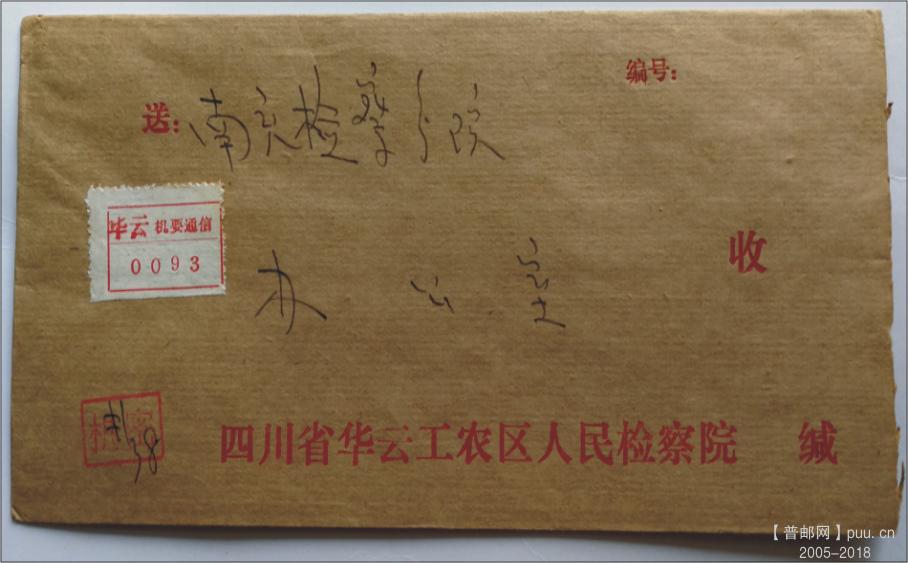 编号：
送：南京检察分院
华云机要通信
0093
收
办公室
机密
38
四川省华云工农区人民检察院 缄
【普邮网】puu.cn
2005-2018